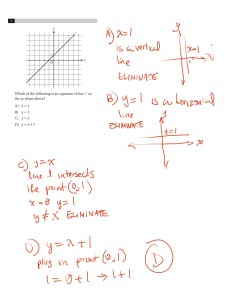 1
Which of the following is an equation of line l in
the xy-plane above?
A) x = 1
B) y = 1
C) y = x
D) y = x + 1
A) x=1
is a vertical
line
ELIMINATE
y
x=1
B) y=1 is a horizontal
line
ELIMINATE
y
y=1
x
C) y=x
line l intersects
the point (0,1)
x=0 y=1
y≠x ELIMINATE
D) y=x+1
plug in point (0,1)
1=0+1 → 1+1
D